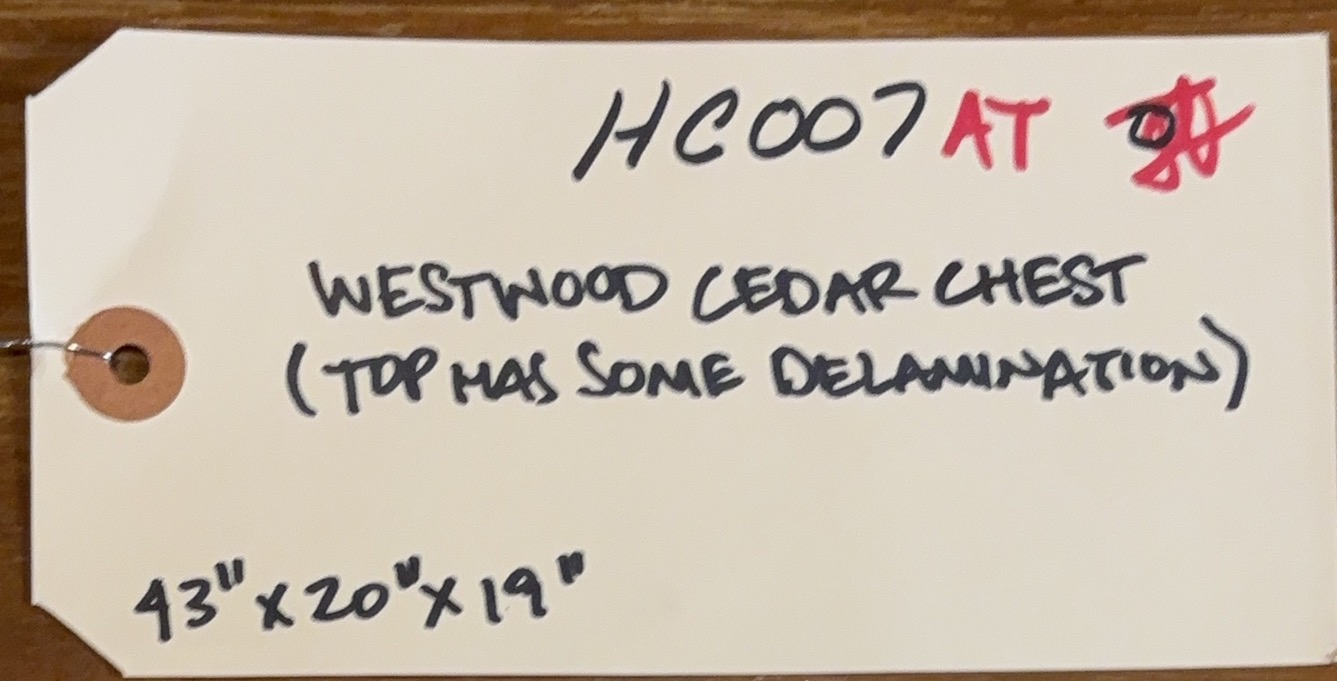 HC007 AT
WESTWOOD CEDAR CHEST
(TOP HAS SOME DELAMINATION)
43" x 20" x 19"